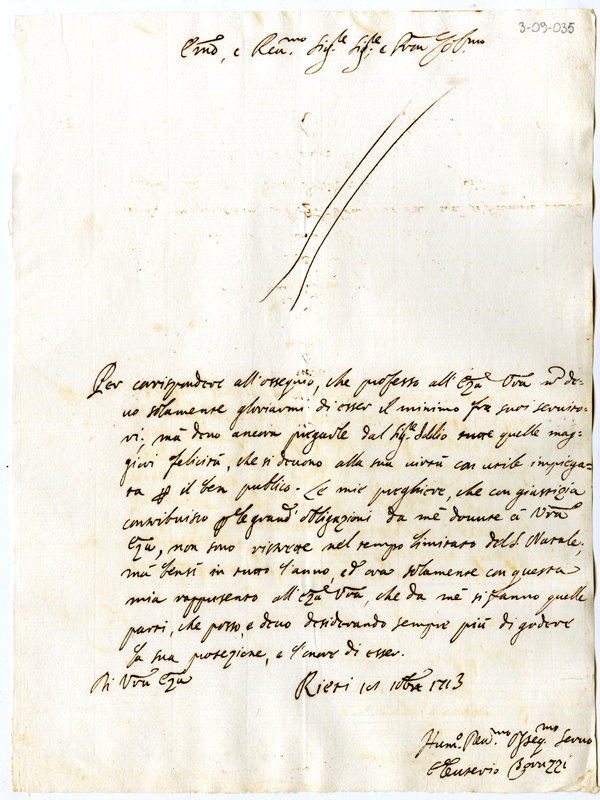 3-09-035
Emo, e Rev.mo Sig.re Sig.re, e Pron Col.mo
Per corrispondere all'ossequio, che professo all'Eza Vra nõ de-
vo solamente gloriarmi di esser il minimo fra suoi servito-
ri; mà devo ancora pregarle dal Sig.re Iddio tutte quelle mag-
giori felicità, che si devono alla sua virtù con utile impiega-
ta p il ben publico. Le mie preghiere, che con giustizia
contribuisco p le grand'obligazioni da mè dovute à Vra
Eza, non sono ristrette nel tempo limitato del S. Natale;
mà bensì in tutto l'anno, ed ora solamente con questa
mia rappresento all'Eza Vra, che da mè si fanno quelle
parti, che posso, e devo desiderando sempre più di godere
la sua protezione, e l'onore di esser.
Di Vra Eza
Rieti 1713
Hum.o Dev.mo Osseq.mo Servo
Eleuterio